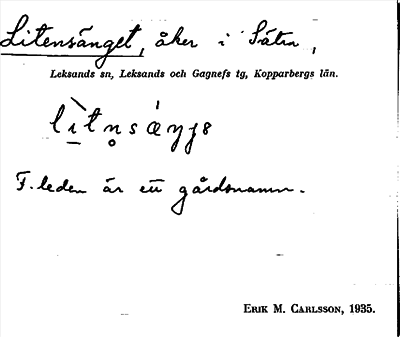 Litensänget, åker i Sätra,
Leksands sn, Leksands och Gagnefs tg, Kopparbergs län.
F.leden är ett gårdsnamn.
ERIK M. CARLSSON, 1935.